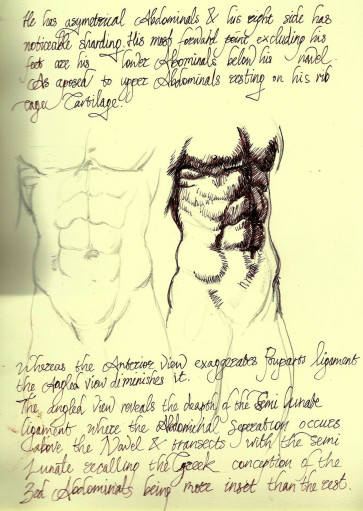 He has asymetrical Abdominals & his right side has
noticeable sharding. His most forward point excluding his
feet are his lower Abominals below his navel.
As aposed to upper Abdominals resting on his rib
cage Cartilage.
Whereas the Anterior View exaggerates Pouparts ligament
the Angled view diminishes it.
The Angled View reveals the deapth of the Semi lunate
ligament where the Abdominal Seperation occures
above the Navel & transects with the semi
Lunate recalling the Greek conception of the
3rd Abdominals being more inset than the rest.